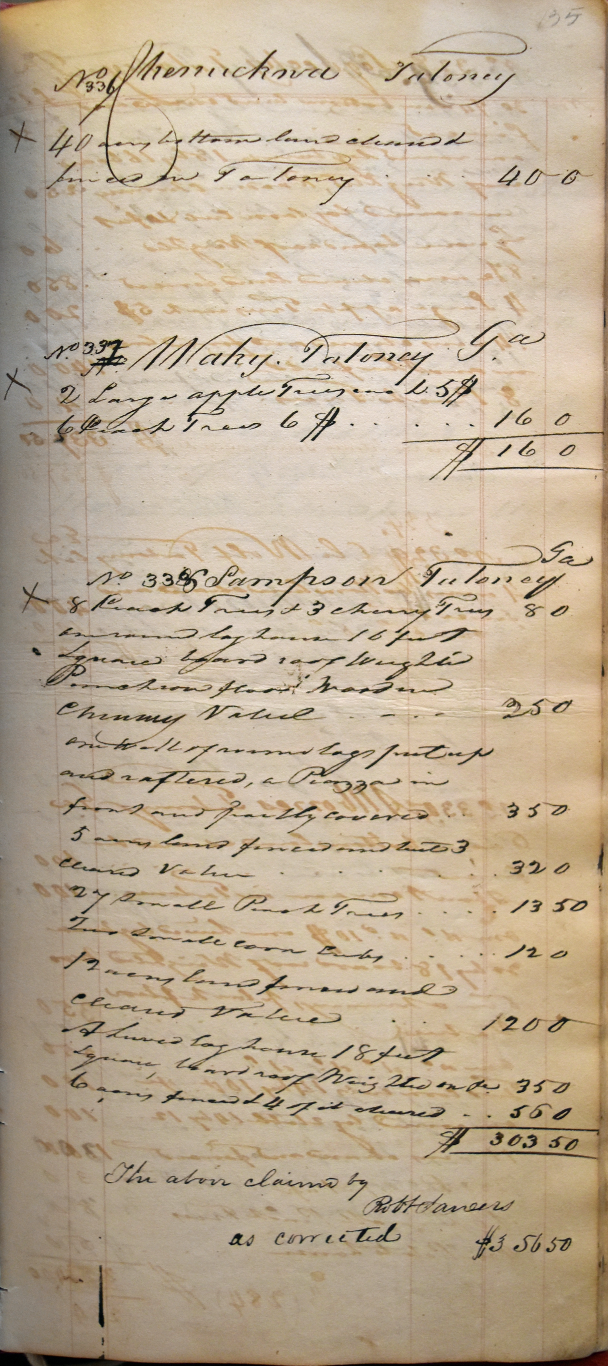 135
No 336 Chenuckwa Taloney
X 40 acres bottom land cleared &
fenced on Taloney . . . 40 0
No 337 Waky. Taloney Ga
X 2 Large apple Trees each 5$
6 Peach Trees 6 $ . . . . . 16 0
$ 16 0
Ga
No 338 Sampson Taloney
X 8 Peach Trees & 3 cherry Trees 8 0
one round log house 16 feet
Square board roof Weighted
Puncheon floor Wooden
Chimney Valued . . . . 25 0
one Wall of round logs put up
and raftered, a Piazza in
front and partly covered 35 0
5 acres land fenced and but 3
cleared Value . . . . . 32 0
27 Small Peach Trees . . . . 13 50
Two Small corn Cribs . . . . 12 0
12 acres land fenced and
cleared Value . . 120 0
A hewed log house 18 feet
Square, board roof Weighted on &c 35 0
6 acres fenced 4 of it cleared . . 56 0
$ 303 50
The above claimed by
Robt
as corrected $356 50